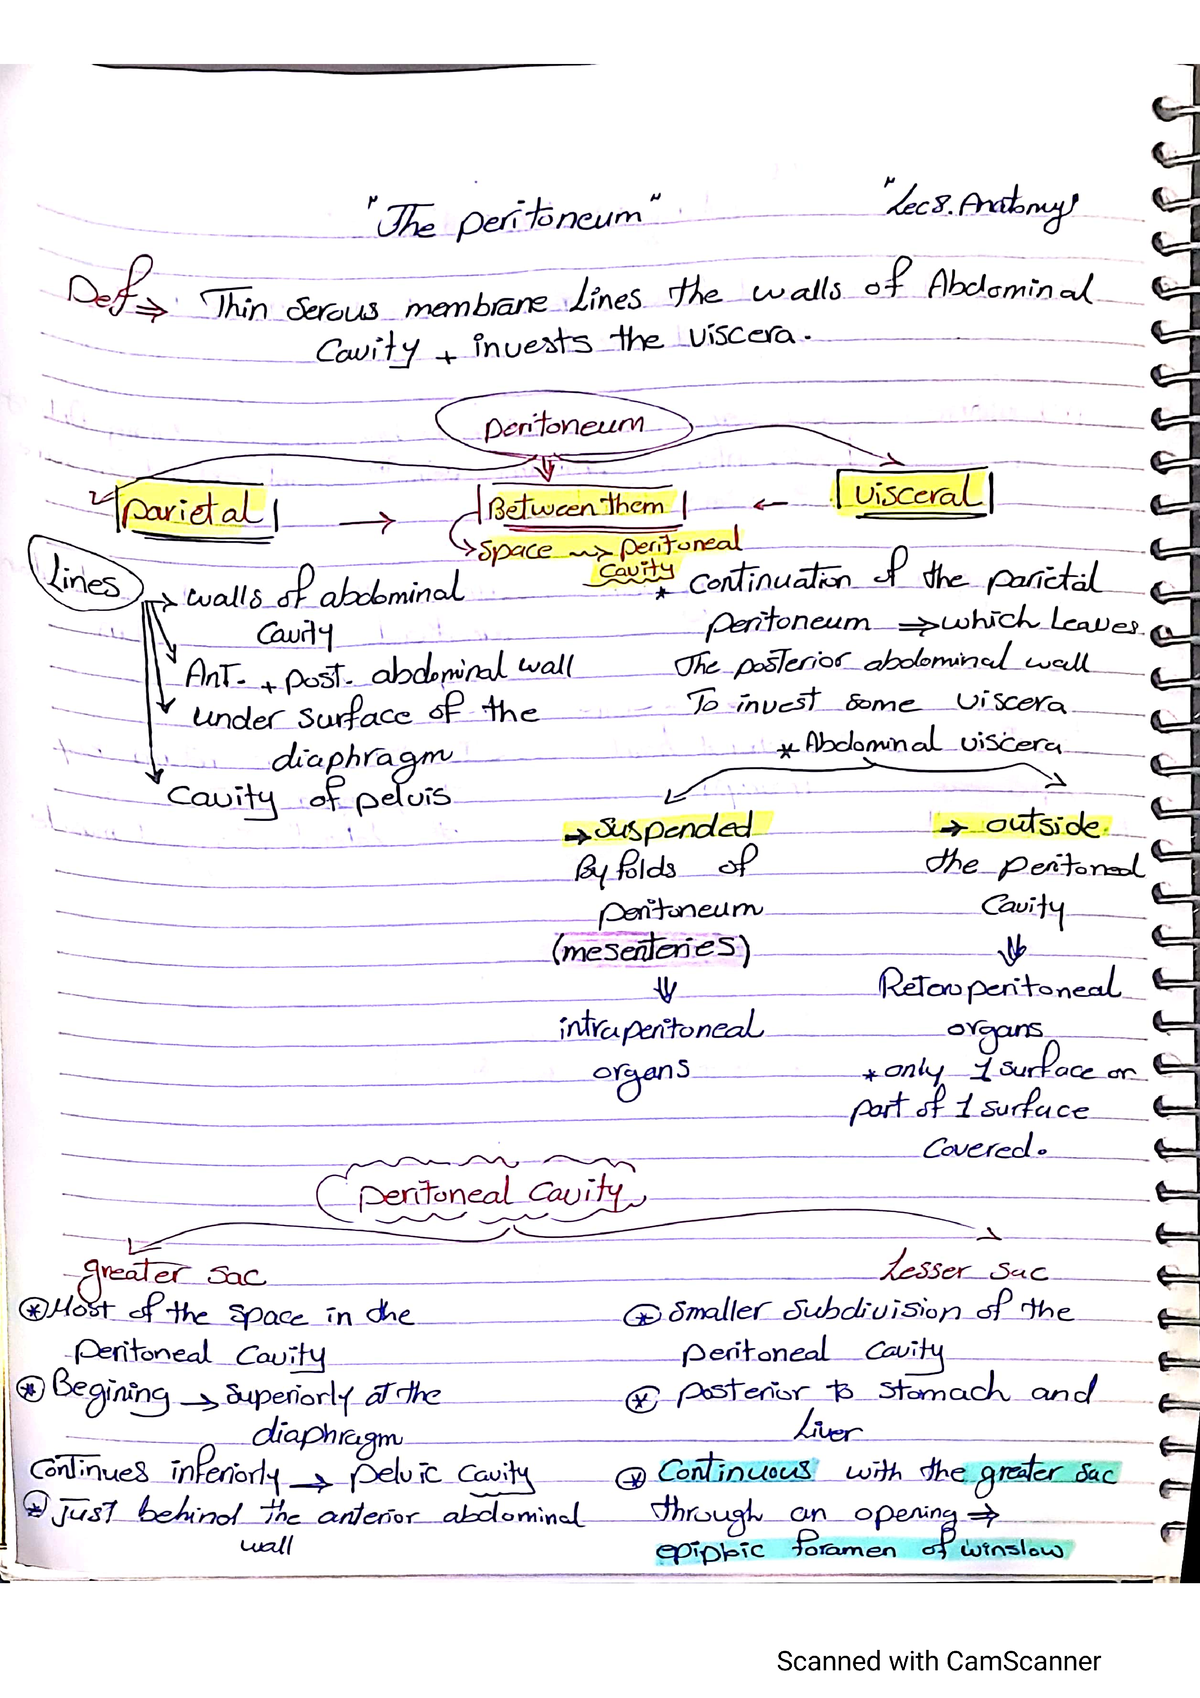 "The peritoneum"
"Lec8. Anatomy"
Def ⇒ Thin serous membrane Lines the walls of Abdominal
Cavity + invests the viscera.
peritoneum
parietal → Between them ← visceral
space ⇝ peritoneal
cavity
Lines
→ walls of abdominal
Cavity
Ant. + post. abdominal wall
under surface of the
diaphragm
Cavity of pelvis
* continuation of the parietal
peritoneum ⇒ which Leaves
The posterior abdominal wall
To invest some viscera
* Abdominal viscera
→ suspended
By folds of
peritoneum
(mesenteries)
⇓
intraperitoneal
organs
→ outside
the peritoneal
Cavity
⇓
Retroperitoneal
organs
* only 1 surface or
part of 1 surface
Covered.
peritoneal Cavity
greater sac
* Most of the space in the
peritoneal Cavity
* Begining → superiorly at the
diaphragm
Continues inferiorly → pelvic cavity
* just behind the anterior abdominal
wall
Lesser sac
* smaller subdivision of the
peritoneal cavity
* posterior to stomach and
Liver
* Continuous with the greater sac
through an opening ⇒
epipbic foramen of winslow
Scanned with CamScanner